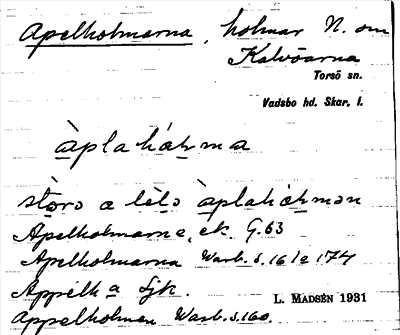 Apelholmarna, holmar N. om
Kalvöarna
Torsö sn.
Vadsbo hd. Skar. l.
àplahàrma
stòrə a lèlə àplahàrmən
Apelholmarne, ek. G.63
Apelholmarna Warb. s. 161 o 174
Appelh a Sjk.
L. MADSÉN 1931
Appelholmen Warb. s. 160.